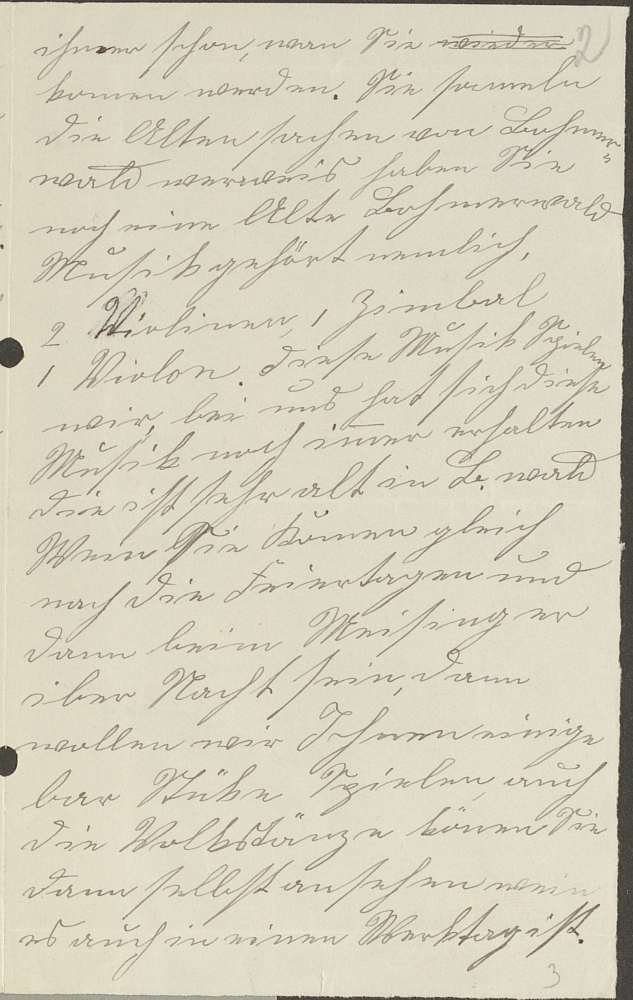 2
ihnen schon, wan Sie wieder
komen werden. Sie sameln
die Alten sachen von Bohmer=
wald werweis haben Sie
noch eine Alte Bohmerwald
Musik gehört nemlich,
2 Violinen, 1 Zimbal
1 Violon. diese Musik Spielen
wir, bei uns hat sich diese
Musik noch imer erhalten
die ist sehr alt in B. wald
Wen Sie komen gleich
nach die Feiertagen und
dann beim Meisinger
iber Nacht sein, dann
wollen wir Ihnen einige
bar Stüke Spielen, auch
die Volkstänze könen Sie
dann selbst ansehen wein
es auch in einen Werktag ist.
3